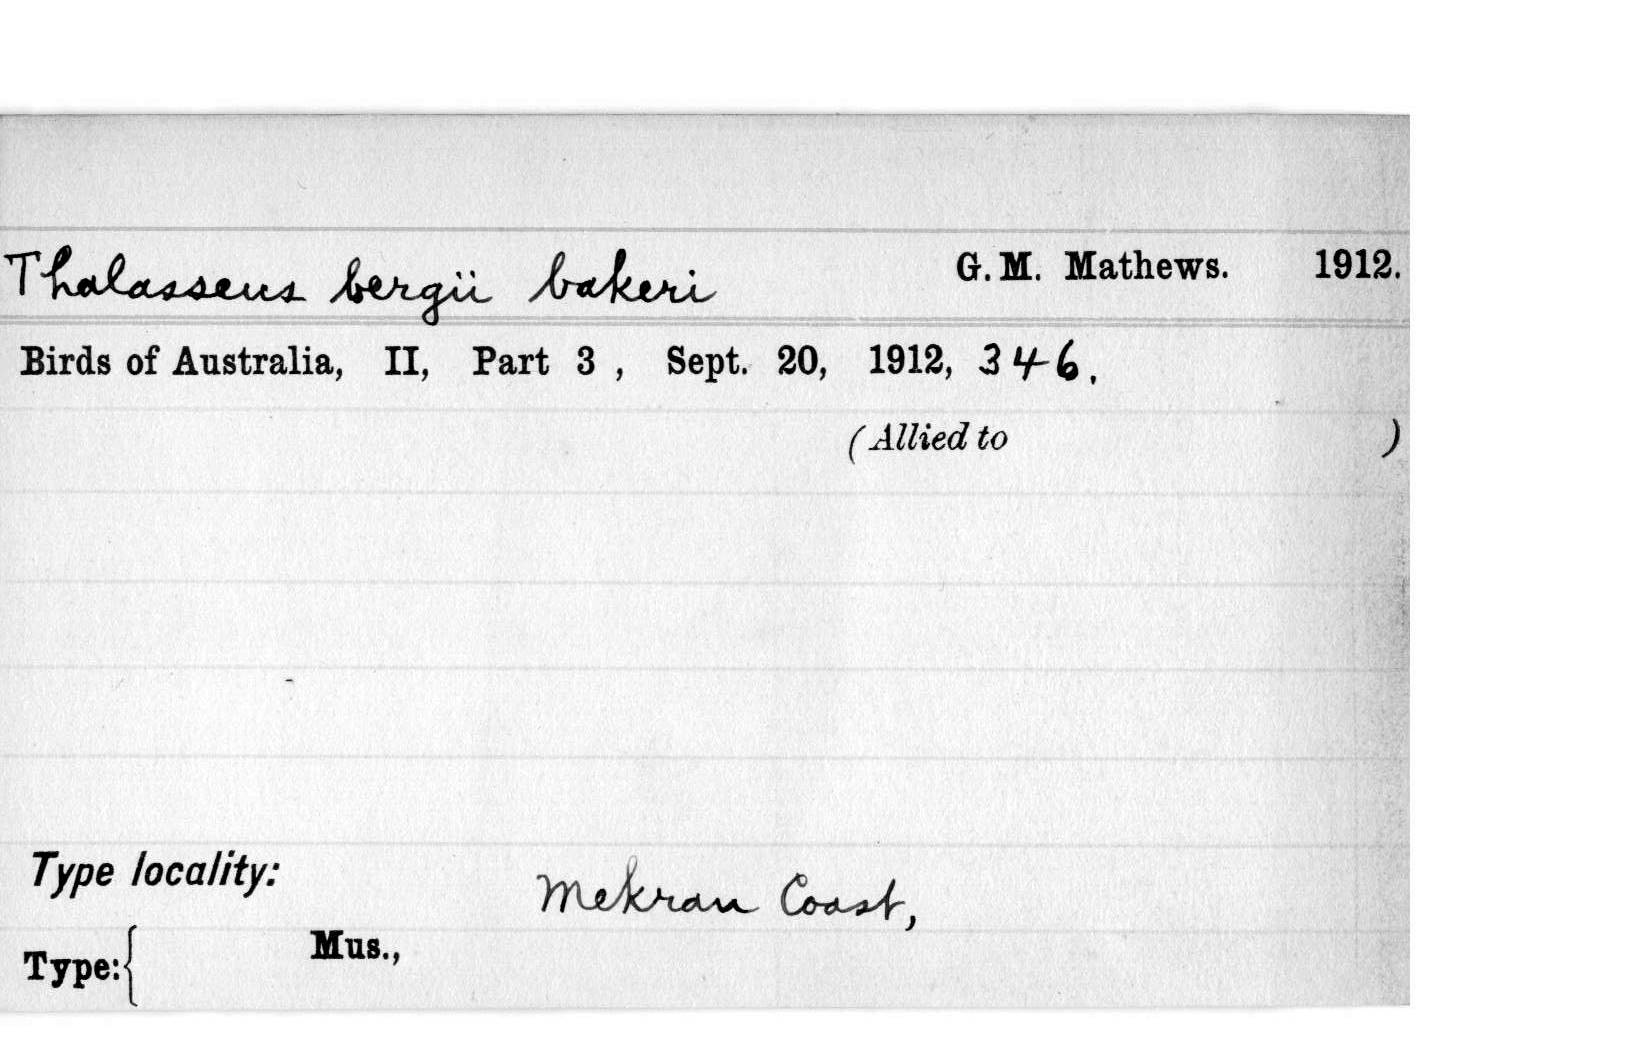 Thalasseus bergii bakeri G. M. Mathews. 1912.
Birds of Australia, II, Part 3 , Sept. 20, 1912, 346.
(Allied to )
Type locality: Mekran Coast,
Type:{ Mus.,